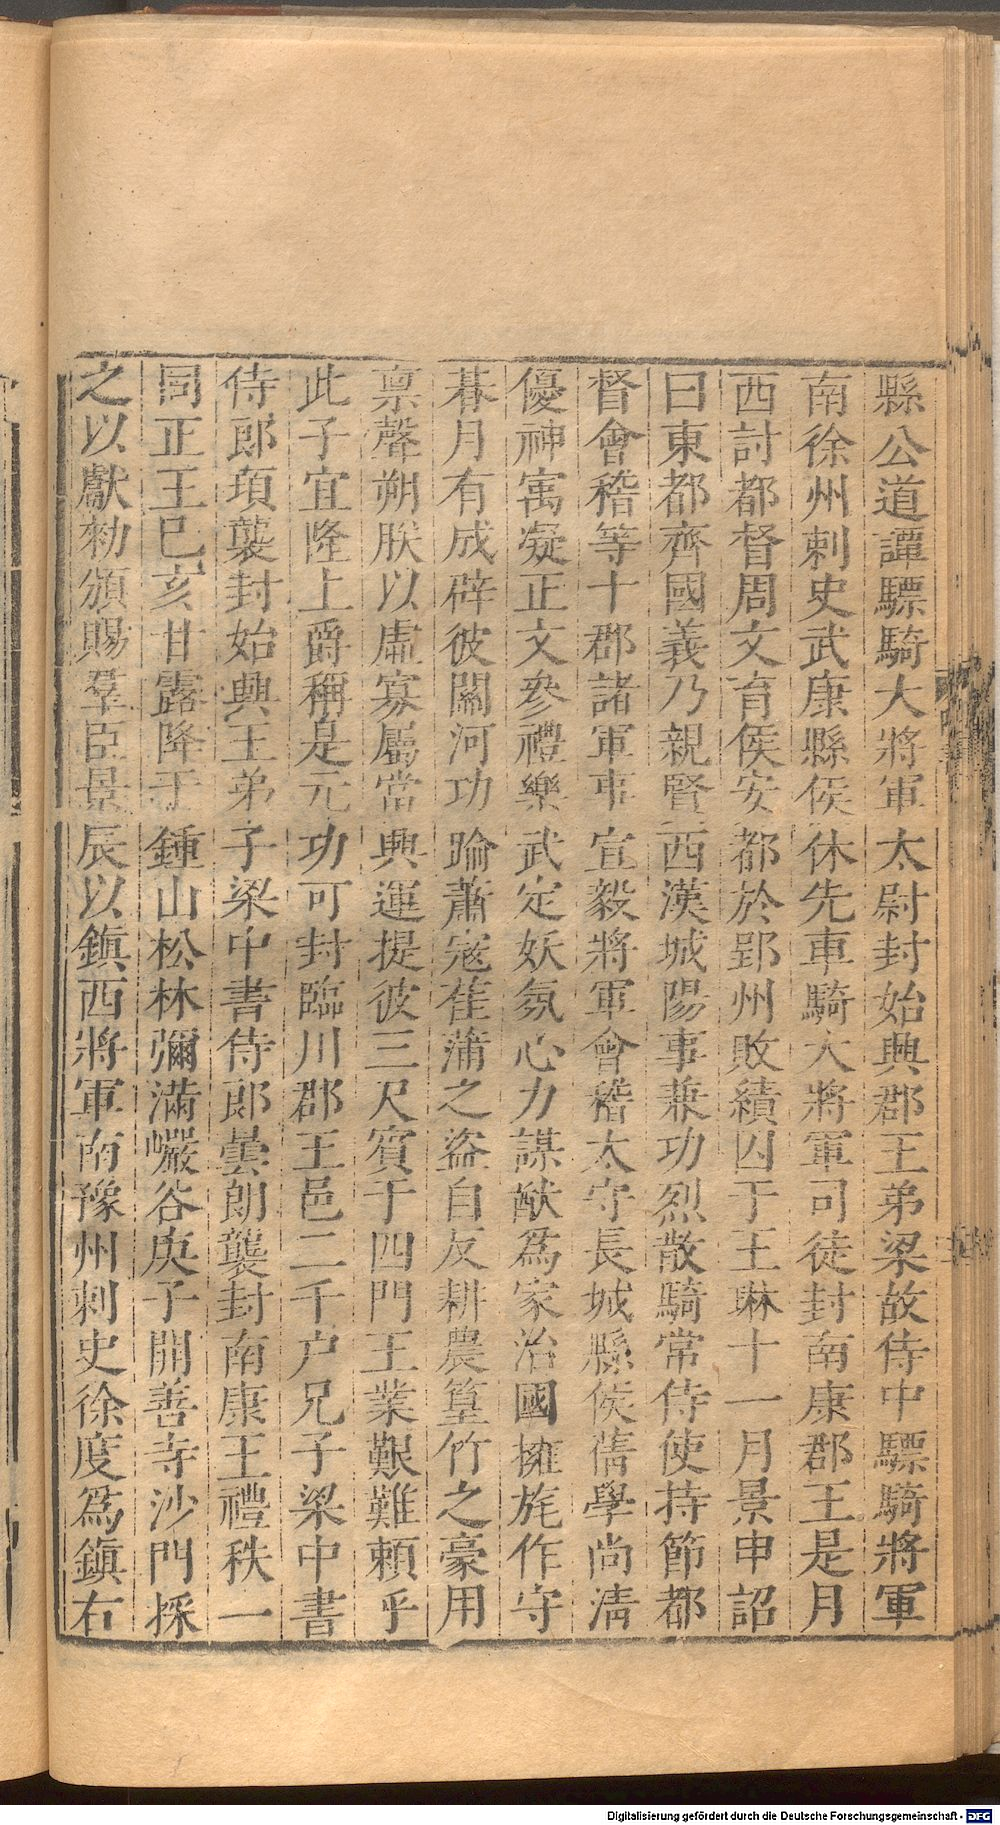 縣公道譚驃騎大將軍太尉封始興郡王弟梁故侍中驃騎將軍
南徐州刺史武康縣侯休先車騎大將軍司徒封南康郡王是月
西討都督周文育侯安都於郢州敗績囚于王琳十一月景申詔
曰東都齊國義乃親賢西漢城陽事兼功烈散騎常侍使持節都
督會稽等十郡諸軍事宣毅將軍會稽太守長城縣侯蒨學尚清
優神寓凝正文參禮樂武定妖氛心力謀猷為家治國擁旄作守
朞月有成辟彼關河功踰蕭寇萑蒲之盜自反耕農篁竹之豪用
稟聲朔朕以虛寡屬當興運提彼三尺賓于四門王業艱難賴乎
此子宜隆上爵稱是元功可封臨川郡王邑二千户兄子梁中書
侍郎頊襲封始興王弟子梁中書侍郎曇朗襲封南康王禮秩一
同正王己亥甘露降于鍾山松林彌滿巖谷庚子開善寺沙門採
之以獻勑頒賜羣臣景辰以鎮西將軍南豫州刺史徐度為鎮右
Digitalisierung gefördert durch die Deutsche Forschungsgemeinschaft - DFG